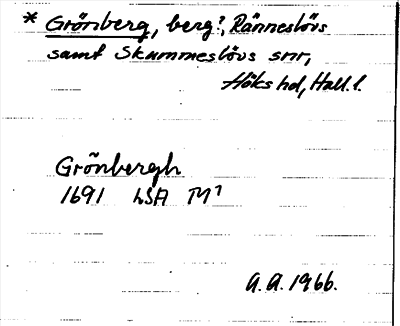 * Grönberg, berg?, Ränneslövs
samt Skummeslövs snr,
Höks hd, Hall. l.
Grönbergh
1691 LSA M¹
A.A. 1966.